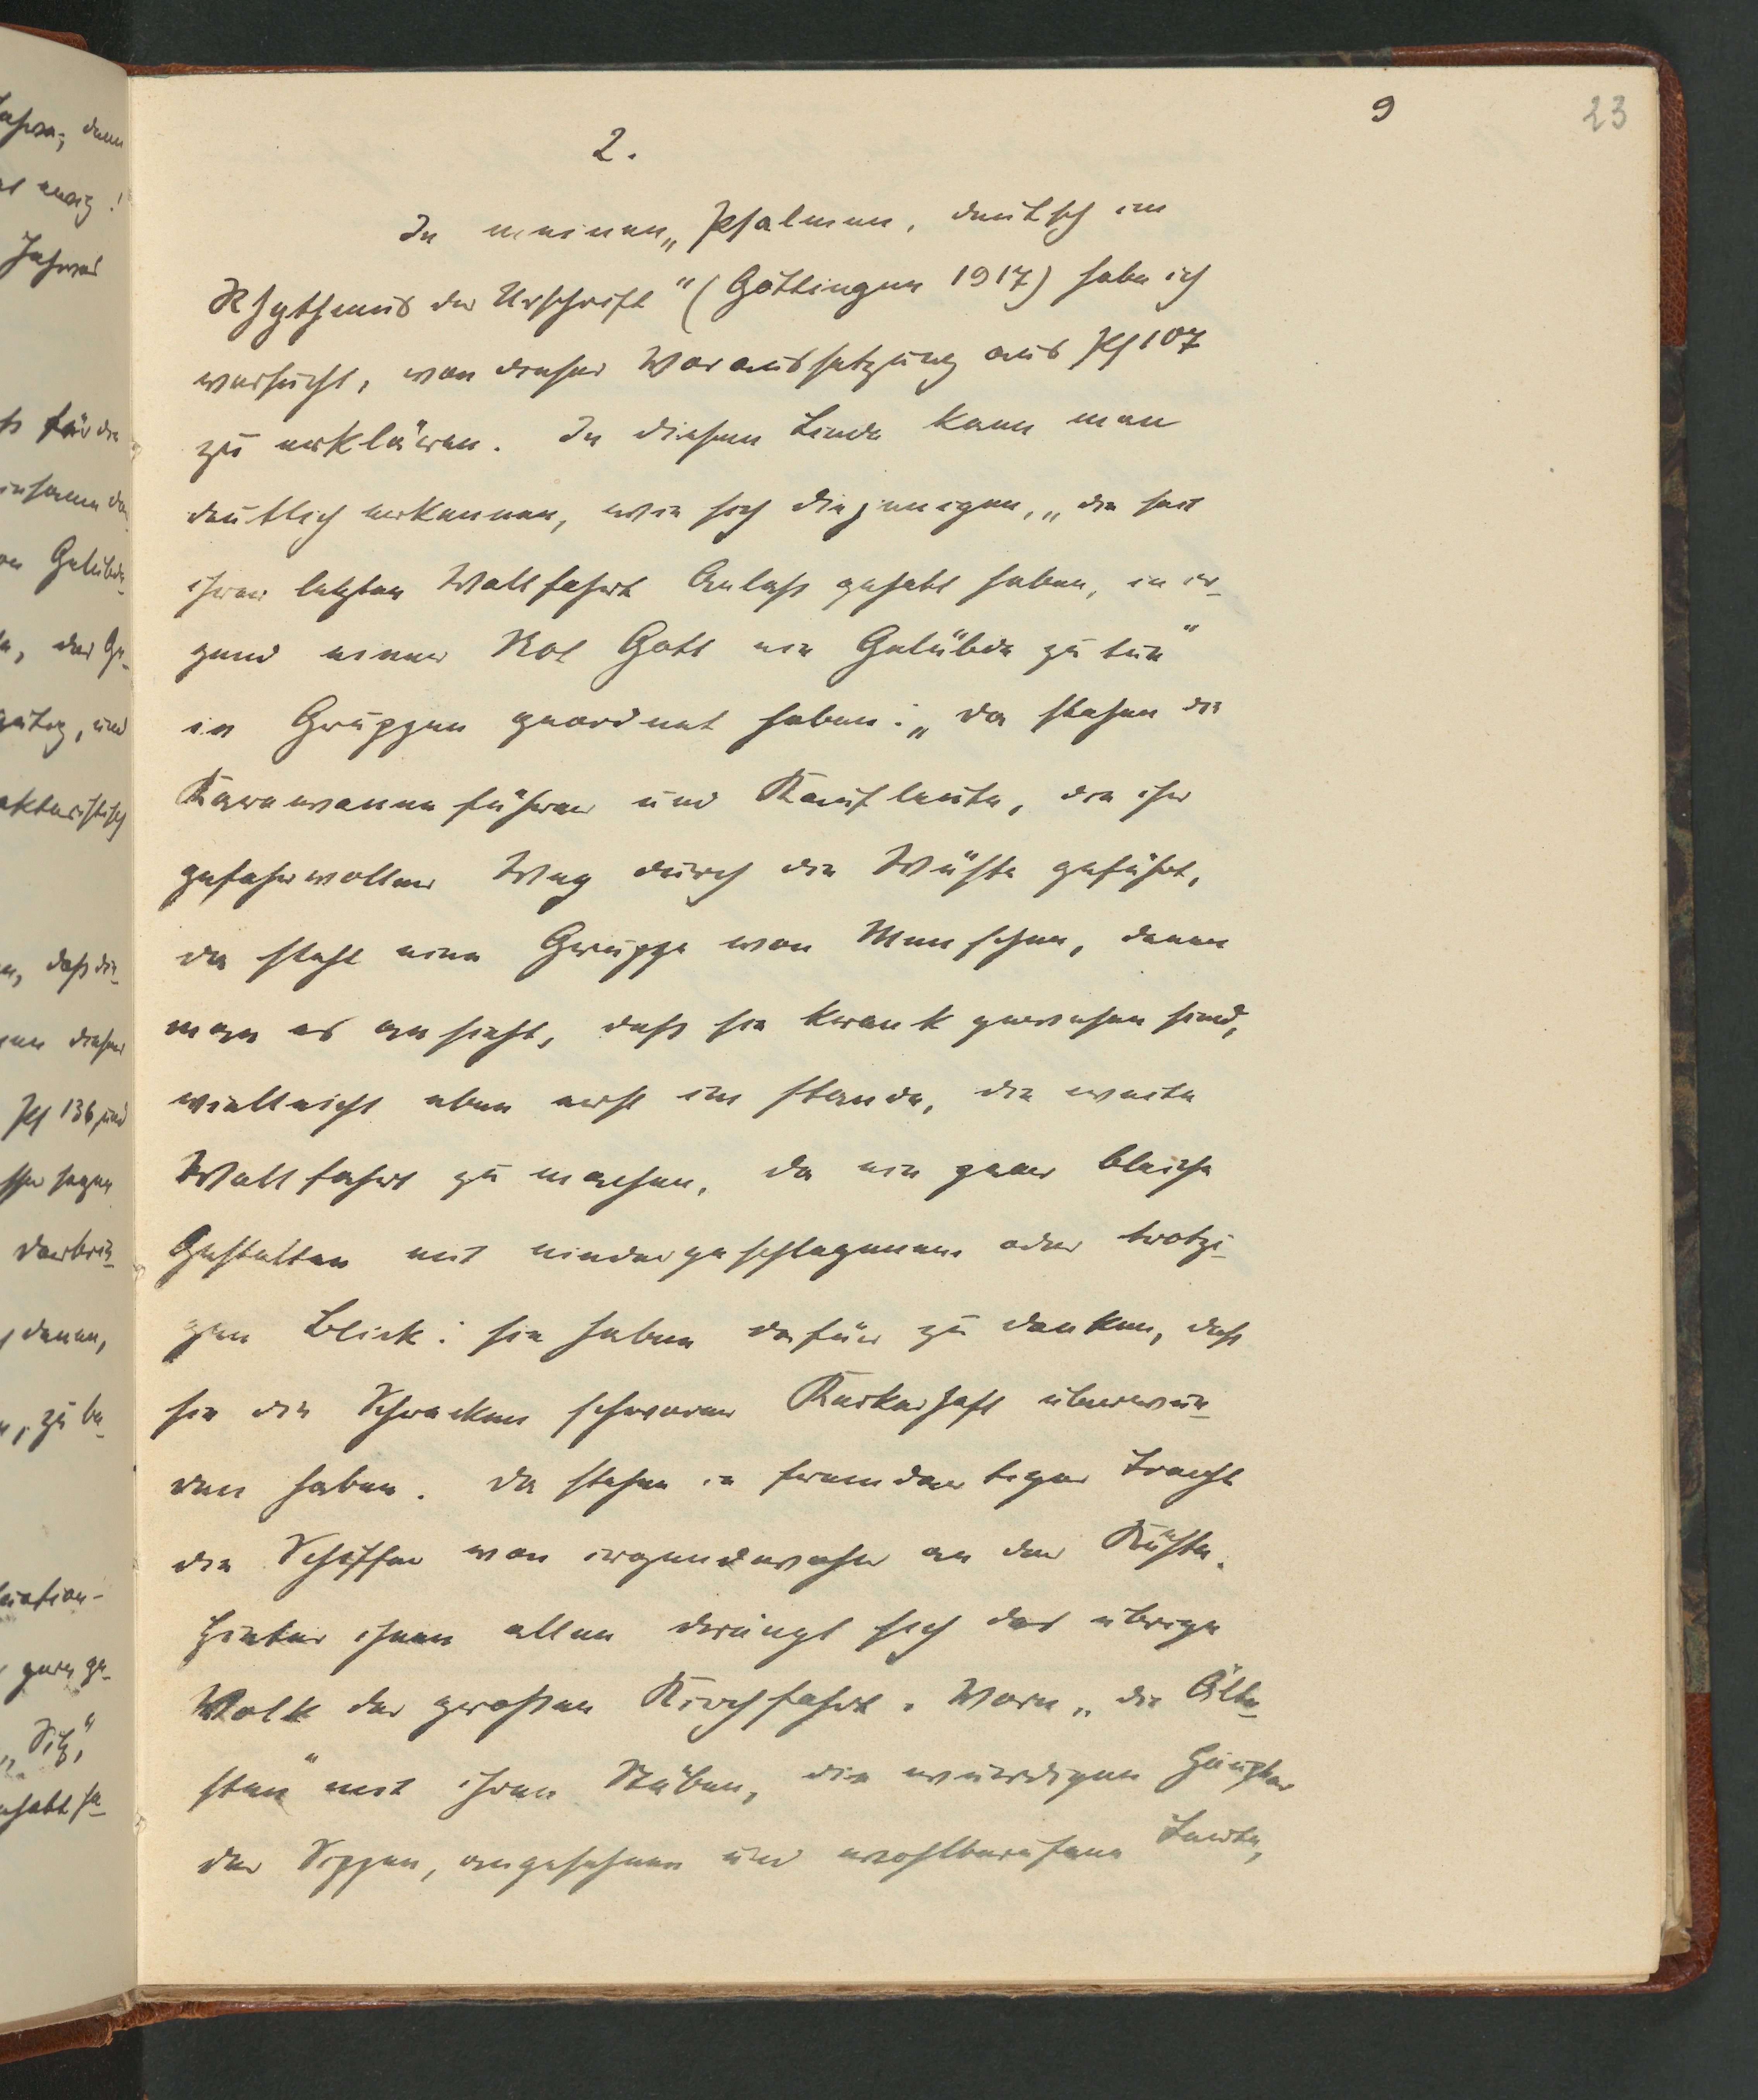 9
23
2.
In meinen „Psalmen, deutsch im
Rhythmus der Urschrift“ (Göttingen 1917) habe ich
versucht, von dieser Voraussetzung aus Ps 107
zu erklären. In diesem Liede kann man
deutlich erkennen, wie sich diejenigen, „die seit
ihrer letzten Wallfahrt Anlaß gehabt haben, in ir-
gend einer Not Gott ein Gelübde zu tun“
in Gruppen geordnet haben: „da stehen die
Karawanenführer und Kaufleute, die ihr
gefahrvoller Weg durch die Wüste geführt,
da steht eine Gruppe von Menschen, denen
man es ansieht, daß sie krank gewesen sind,
vielleicht eben erst im stande, die weite
Wallfahrt zu machen, da ein paar bleiche
Gestalten mit niedergeschlagenem oder trotzi-
gen Blick: sie haben dafür zu danken, daß
sie die Schrecken schwerer Kerkerhaft überwun-
den haben. Da stehen in fremdartiger Tracht
die Schiffer von irgendwoher an der Küste.
Hinter ihnen allen drängt sich das übrige
Volk der großen Kirchfahrt. Vorn „die Älte-
sten“ mit ihren Stäben, die würdigen Häupter
der Sippen, angesehene und wohlberufene Leute,